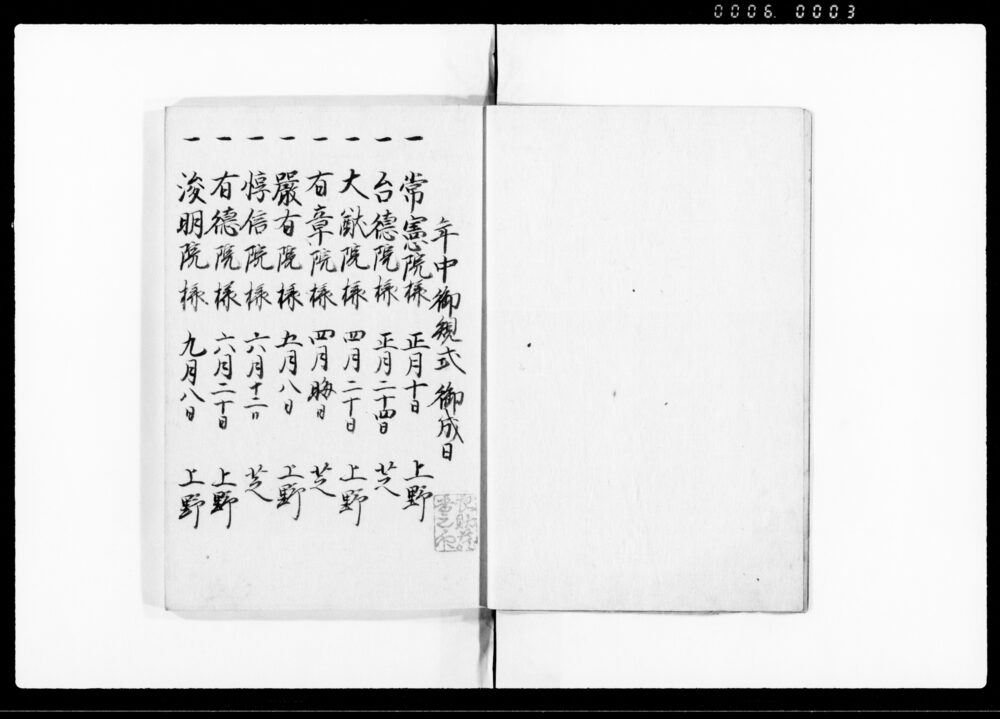 0006. 0003
年中御規式御成日
一 常憲院様 正月十日 上野
一 台德院様 正月二十四日 芝
一 大猷院様 四月二十日 上野
一 有章院様 四月晦日 芝
一 嚴有院様 五月八日 上野
一 惇信院様 六月十二日 芝
一 有德院様 六月二十日 上野
一 浚明院様 九月八日 上野